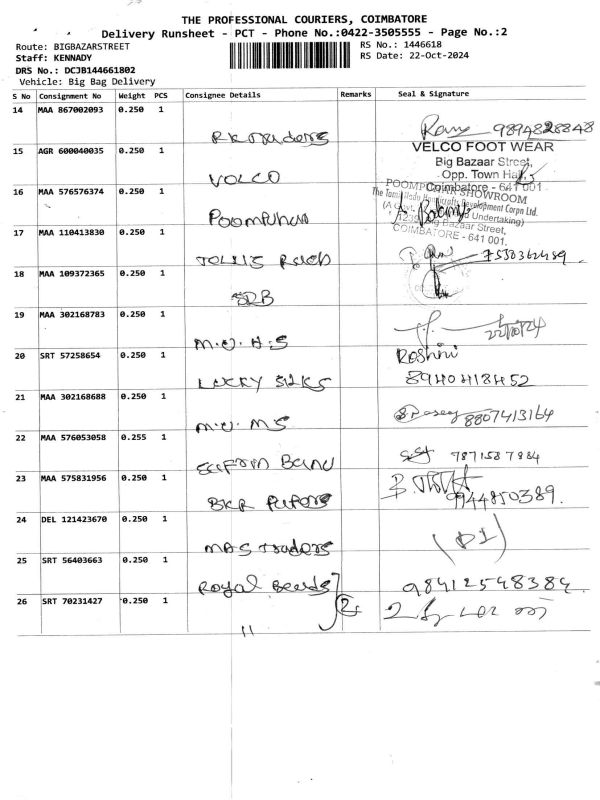 THE PROFESSIONAL COURIERS, COIMBATORE
Delivery Runsheet - PCT - Phone No.:0422-3505555 - Page No.:2
Route: BIGBAZARSTREET RS No.: 1446618
Staff: KENNADY RS Date: 22-Oct-2024
DRS No.: DCJB144661802
Vehicle: Big Bag Delivery
S No Consignment No Weight PCS Consignee Details Remarks Seal & Signature
14 MAA 867002093 0.250 1
RK Traders 9894828848
15 AGR 600040035 0.250 1
VOLCO
VELCO FOOT WEAR
Big Bazaar Street,
Opp. Town Hall,
Coimbatore - 641 001
16 MAA 576576374 0.250 1
Poompuhar
POOMPUHAR SHOWROOM
The Tamil Nadu Handicrafts Development Corpn Ltd.
Undertaking)
Big Bazaar Street,
COIMBATORE - 641 001.
17 MAA 110413830 0.250 1
7530362489
18 MAA 109372365 0.250 1
SRB
19 MAA 302168783 0.250 1
M.U.H.S 22/10/24
20 SRT 57258654 0.250 1 Roshini
LUCKY SILKS 8940418452
21 MAA 302168688 0.250 1
M.U. MS 8807413164
22 MAA 576053058 0.255 1
9871587984
23 MAA 575831956 0.250 1
BKR Papers 9944850389.
24 DEL 121423670 0.250 1
MAS Traders
25 SRT 56403663 0.250 1
Royal Beeds 98412548384.
26 SRT 70231427 0.250 1 2
"